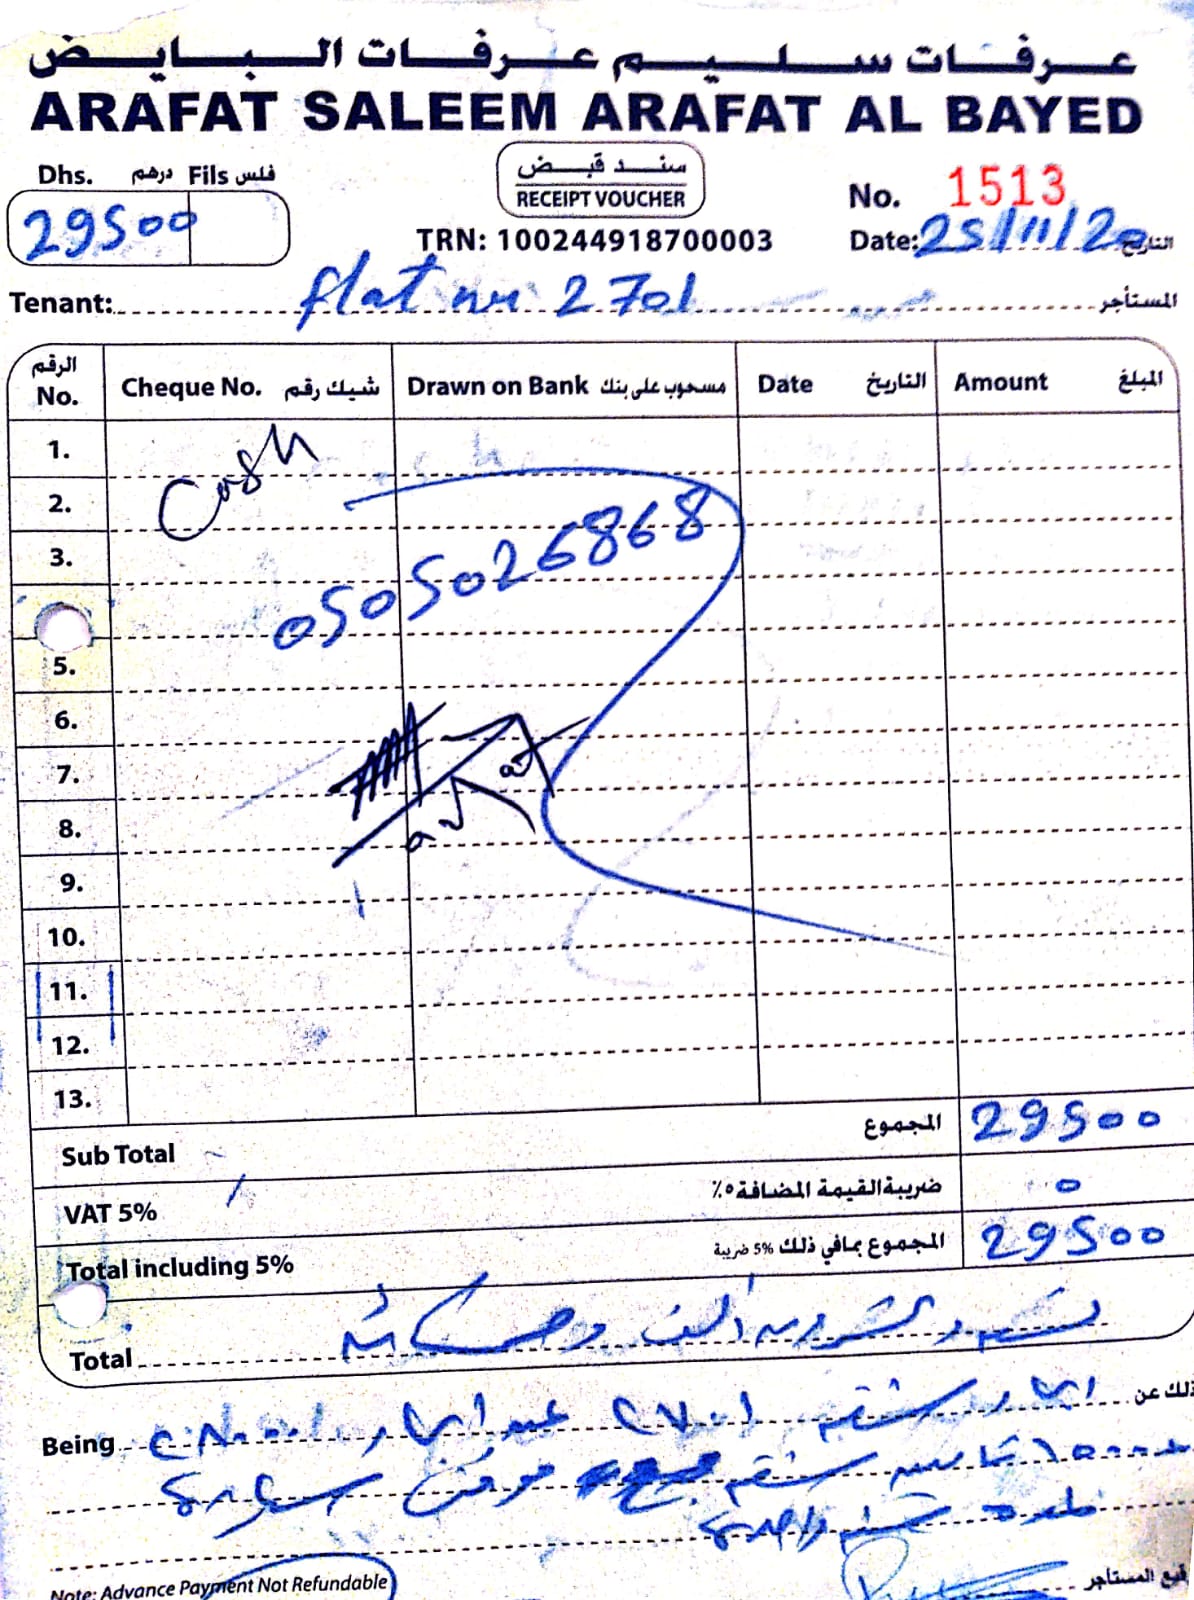 عرفات سليم عرفات البايض
ARAFAT SALEEM ARAFAT AL BAYED
Dhs. درهم Fils فلس
29500
سند قبض
RECEIPT VOUCHER
TRN: 100244918700003
No. 1513
Date: 25/11/20 التاريخ
Tenant: flat nu 2701 المستأجر
الرقم No. Cheque No. شيك رقم Drawn on Bank مسحوب على بنك Date التاريخ Amount المبلغ
1.
Cash
2.
3.
0505026868
5.
6.
7.
8.
9.
10.
11.
12.
13.
Sub Total المجموع 29500
VAT 5% ضريبة القيمة المضافة ٥٪ 0
Total including 5% المجموع بمافي ذلك 5% ضريبة 29500
Total تسعة وعشرون ألف وخمسمائة
Being ايجار شقة ٢٧٠١ عبد ايجار ٢٨٠٠٠ ذلك عن
١٥٠٠ تأمين شقة مع موقف سيارة
لمدة سنة واحدة
Note: Advance Payment Not Refundable
توقيع المستأجر